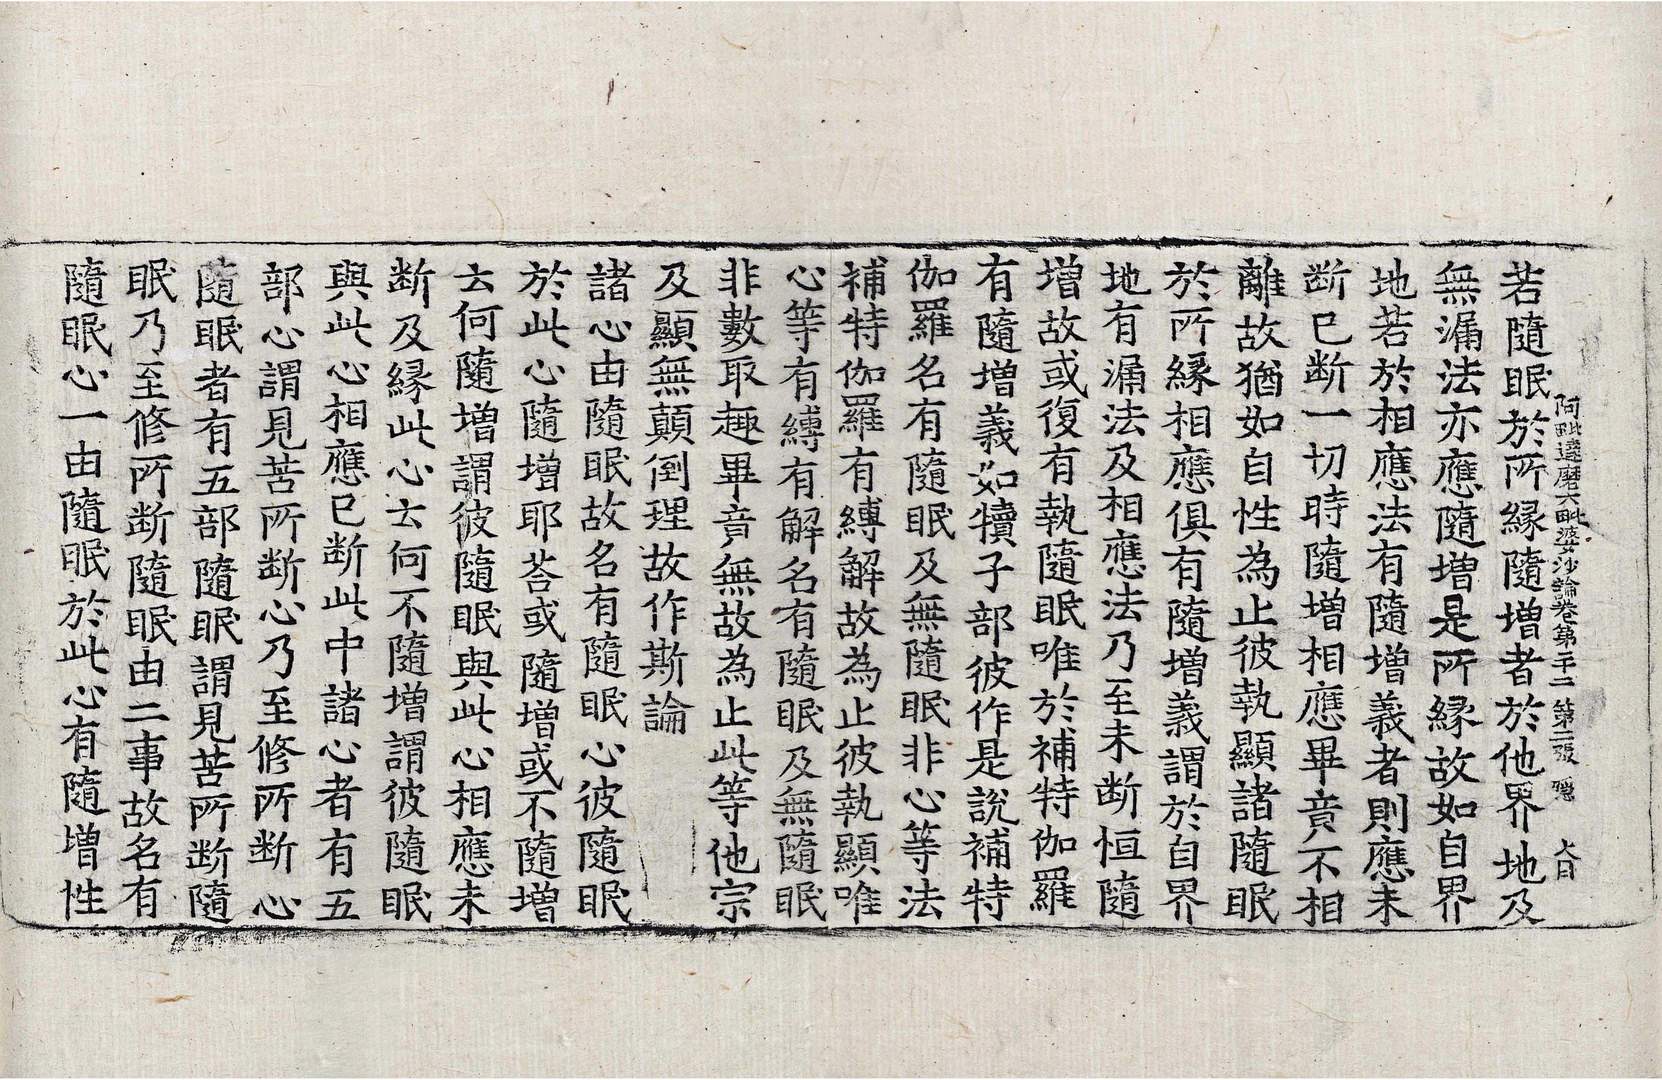 阿毗達磨大毗婆沙論卷第二十二 第二張 隱 大日
若隨眠於所縁隨增者於他界地及
無漏法亦應隨增是所縁故如自界
地若於相應法有隨增義者則應未
断已断一切時隨增相應畢竟不相
離故猶如自性為止彼執顯諸隨眠
於所縁相應俱有隨增義謂於自界
地有漏法及相應法乃至未断恒隨
增故或復有執隨眠唯於補特伽羅
有隨增義如犢子部彼作是說補特
伽羅名有隨眠及無隨眠非心等法
補特伽羅有縛解故為止彼執顯唯
心等有縛有解名有隨眠及無隨眠
非數取趣畢竟無故為止此等他宗
及顯無顛倒理故作斯論
諸心由隨眠故名有隨眠心彼隨眠
於此心隨增耶荅或隨增或不隨增
云何隨增謂彼隨眠與此心相應未
断及縁此心云何不隨增謂彼隨眠
與此心相應已断此中諸心者有五
部心謂見苦所断心乃至修所断心
隨眠者有五部隨眠謂見苦所断隨
眠乃至修所断隨眠由二事故名有
隨眠心一由隨眠於此心有隨增性